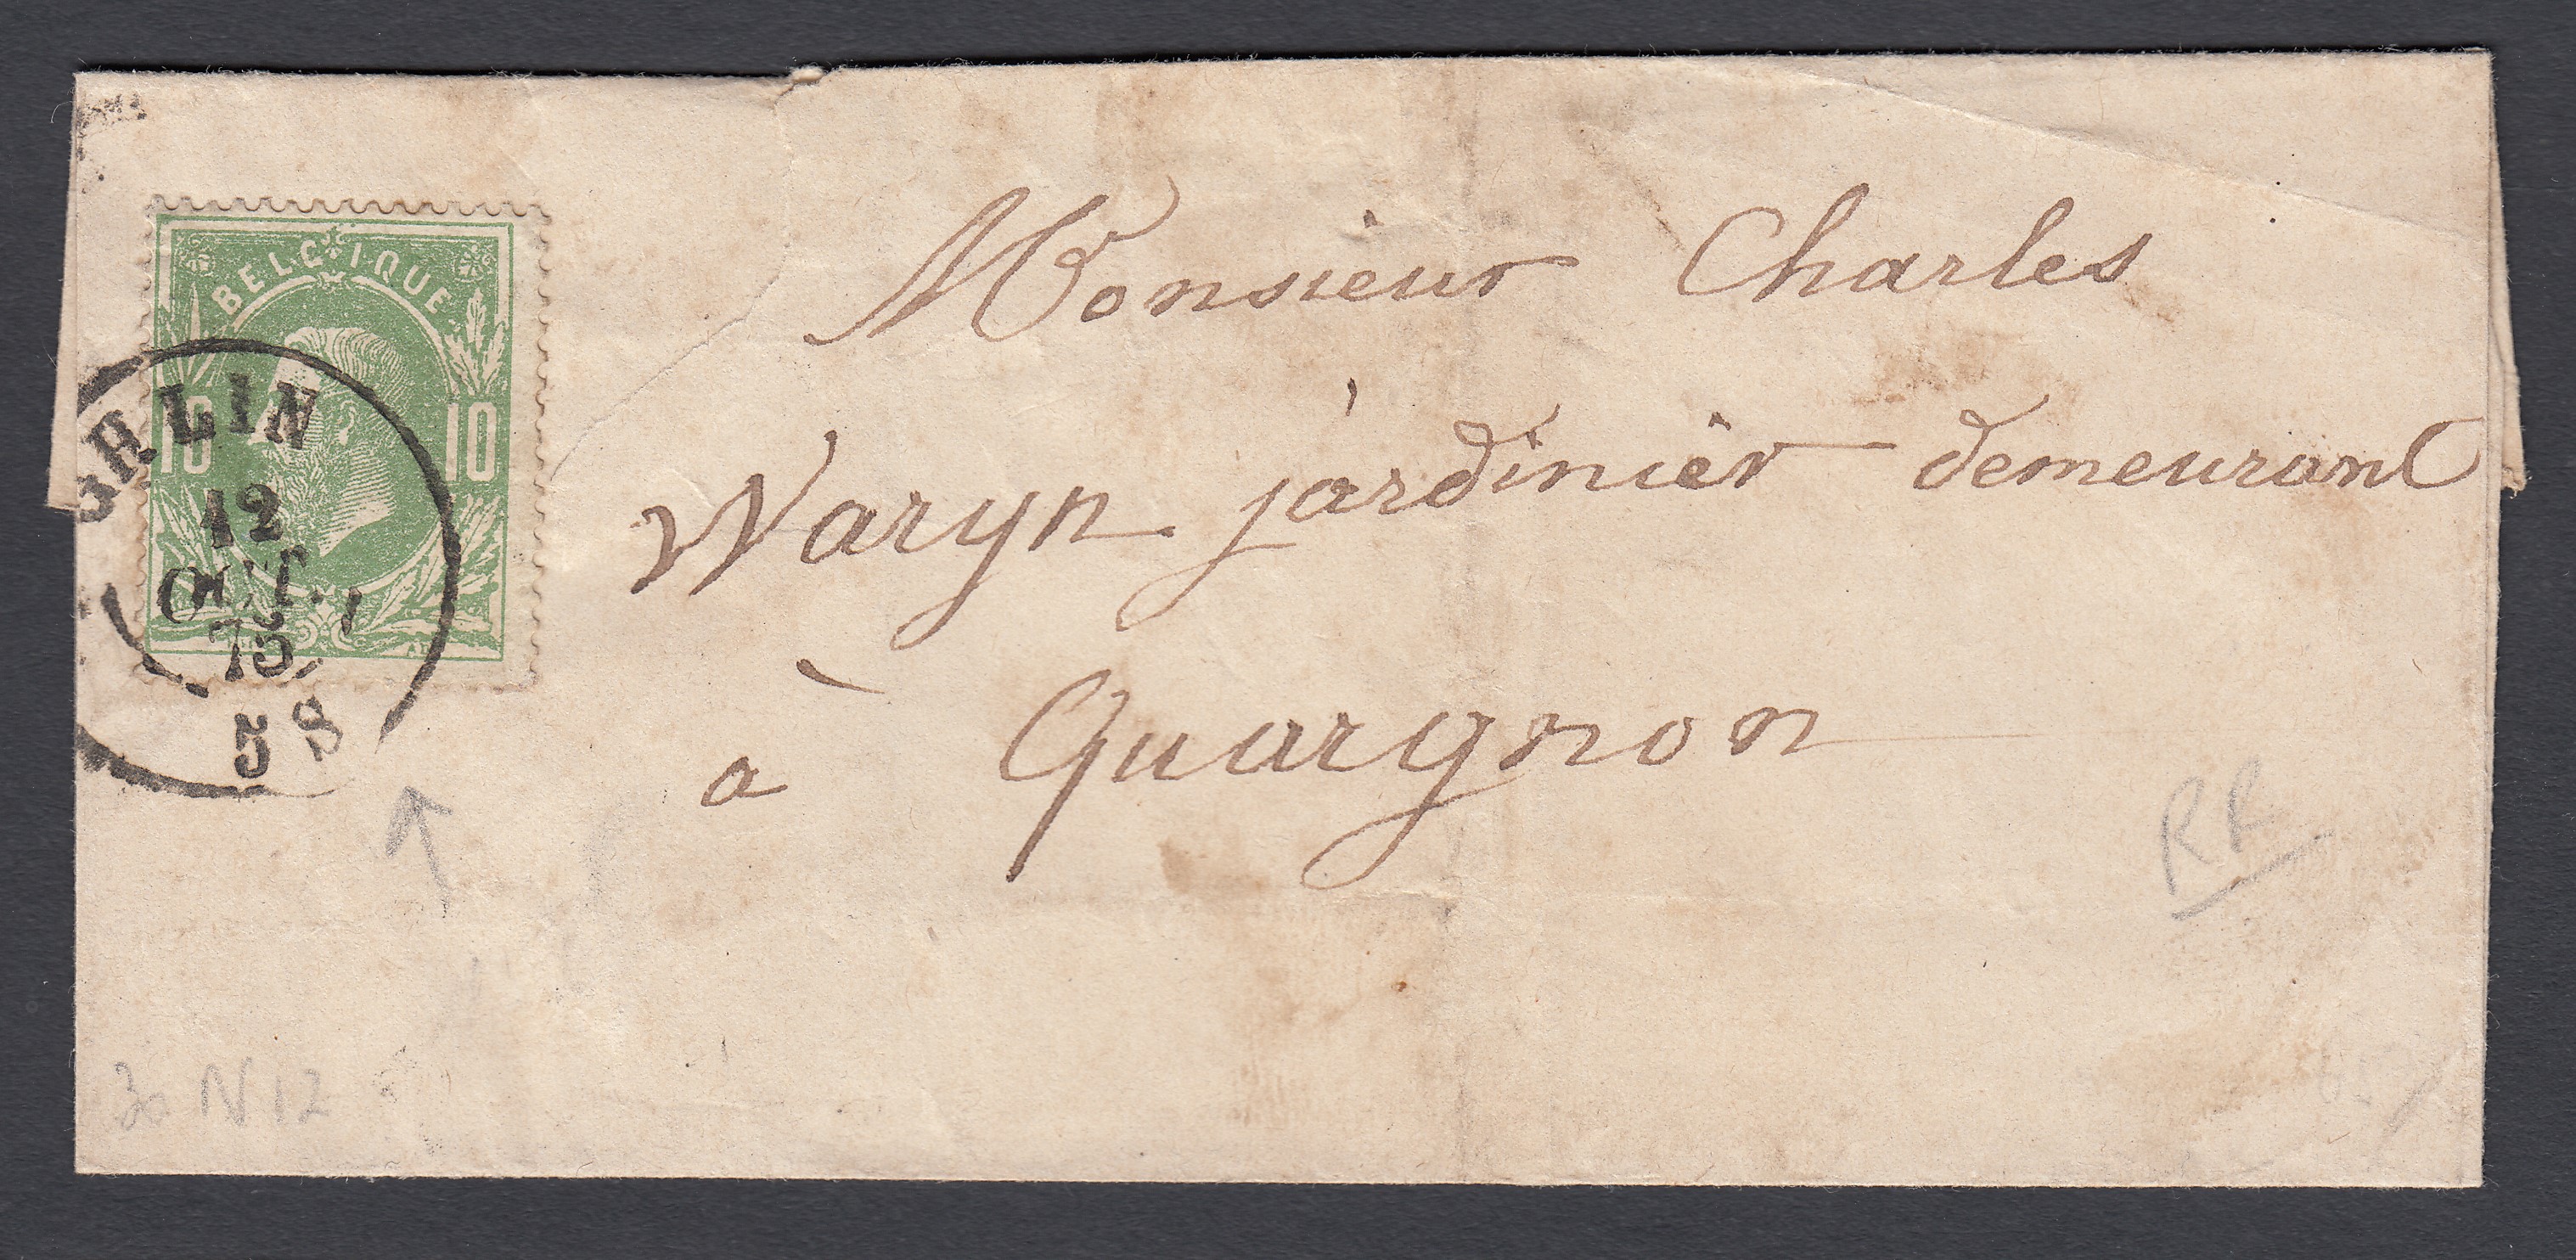 BELGIQUE
10 10
GHLIN
12
OCT.
75
5 S
Monsieur Charles
Waryn jardinier demeurant
à Quaregnon
RR
30 N12